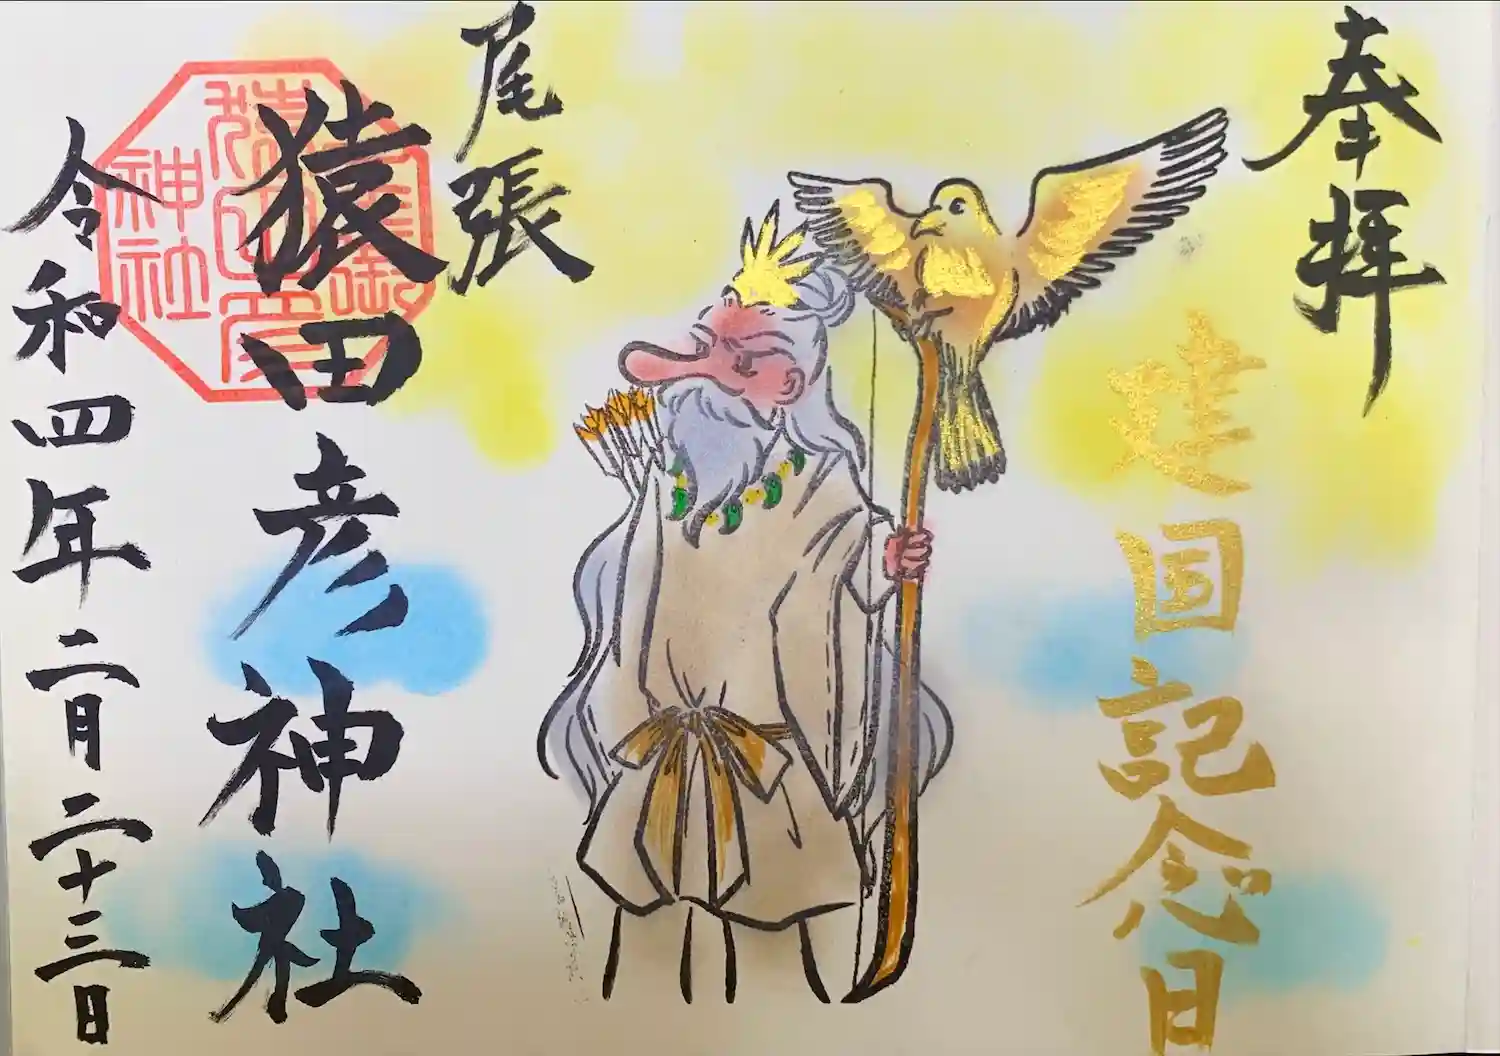 奉拝
建国記念日
尾張
猿田彦神社
令和四年二月二十三日